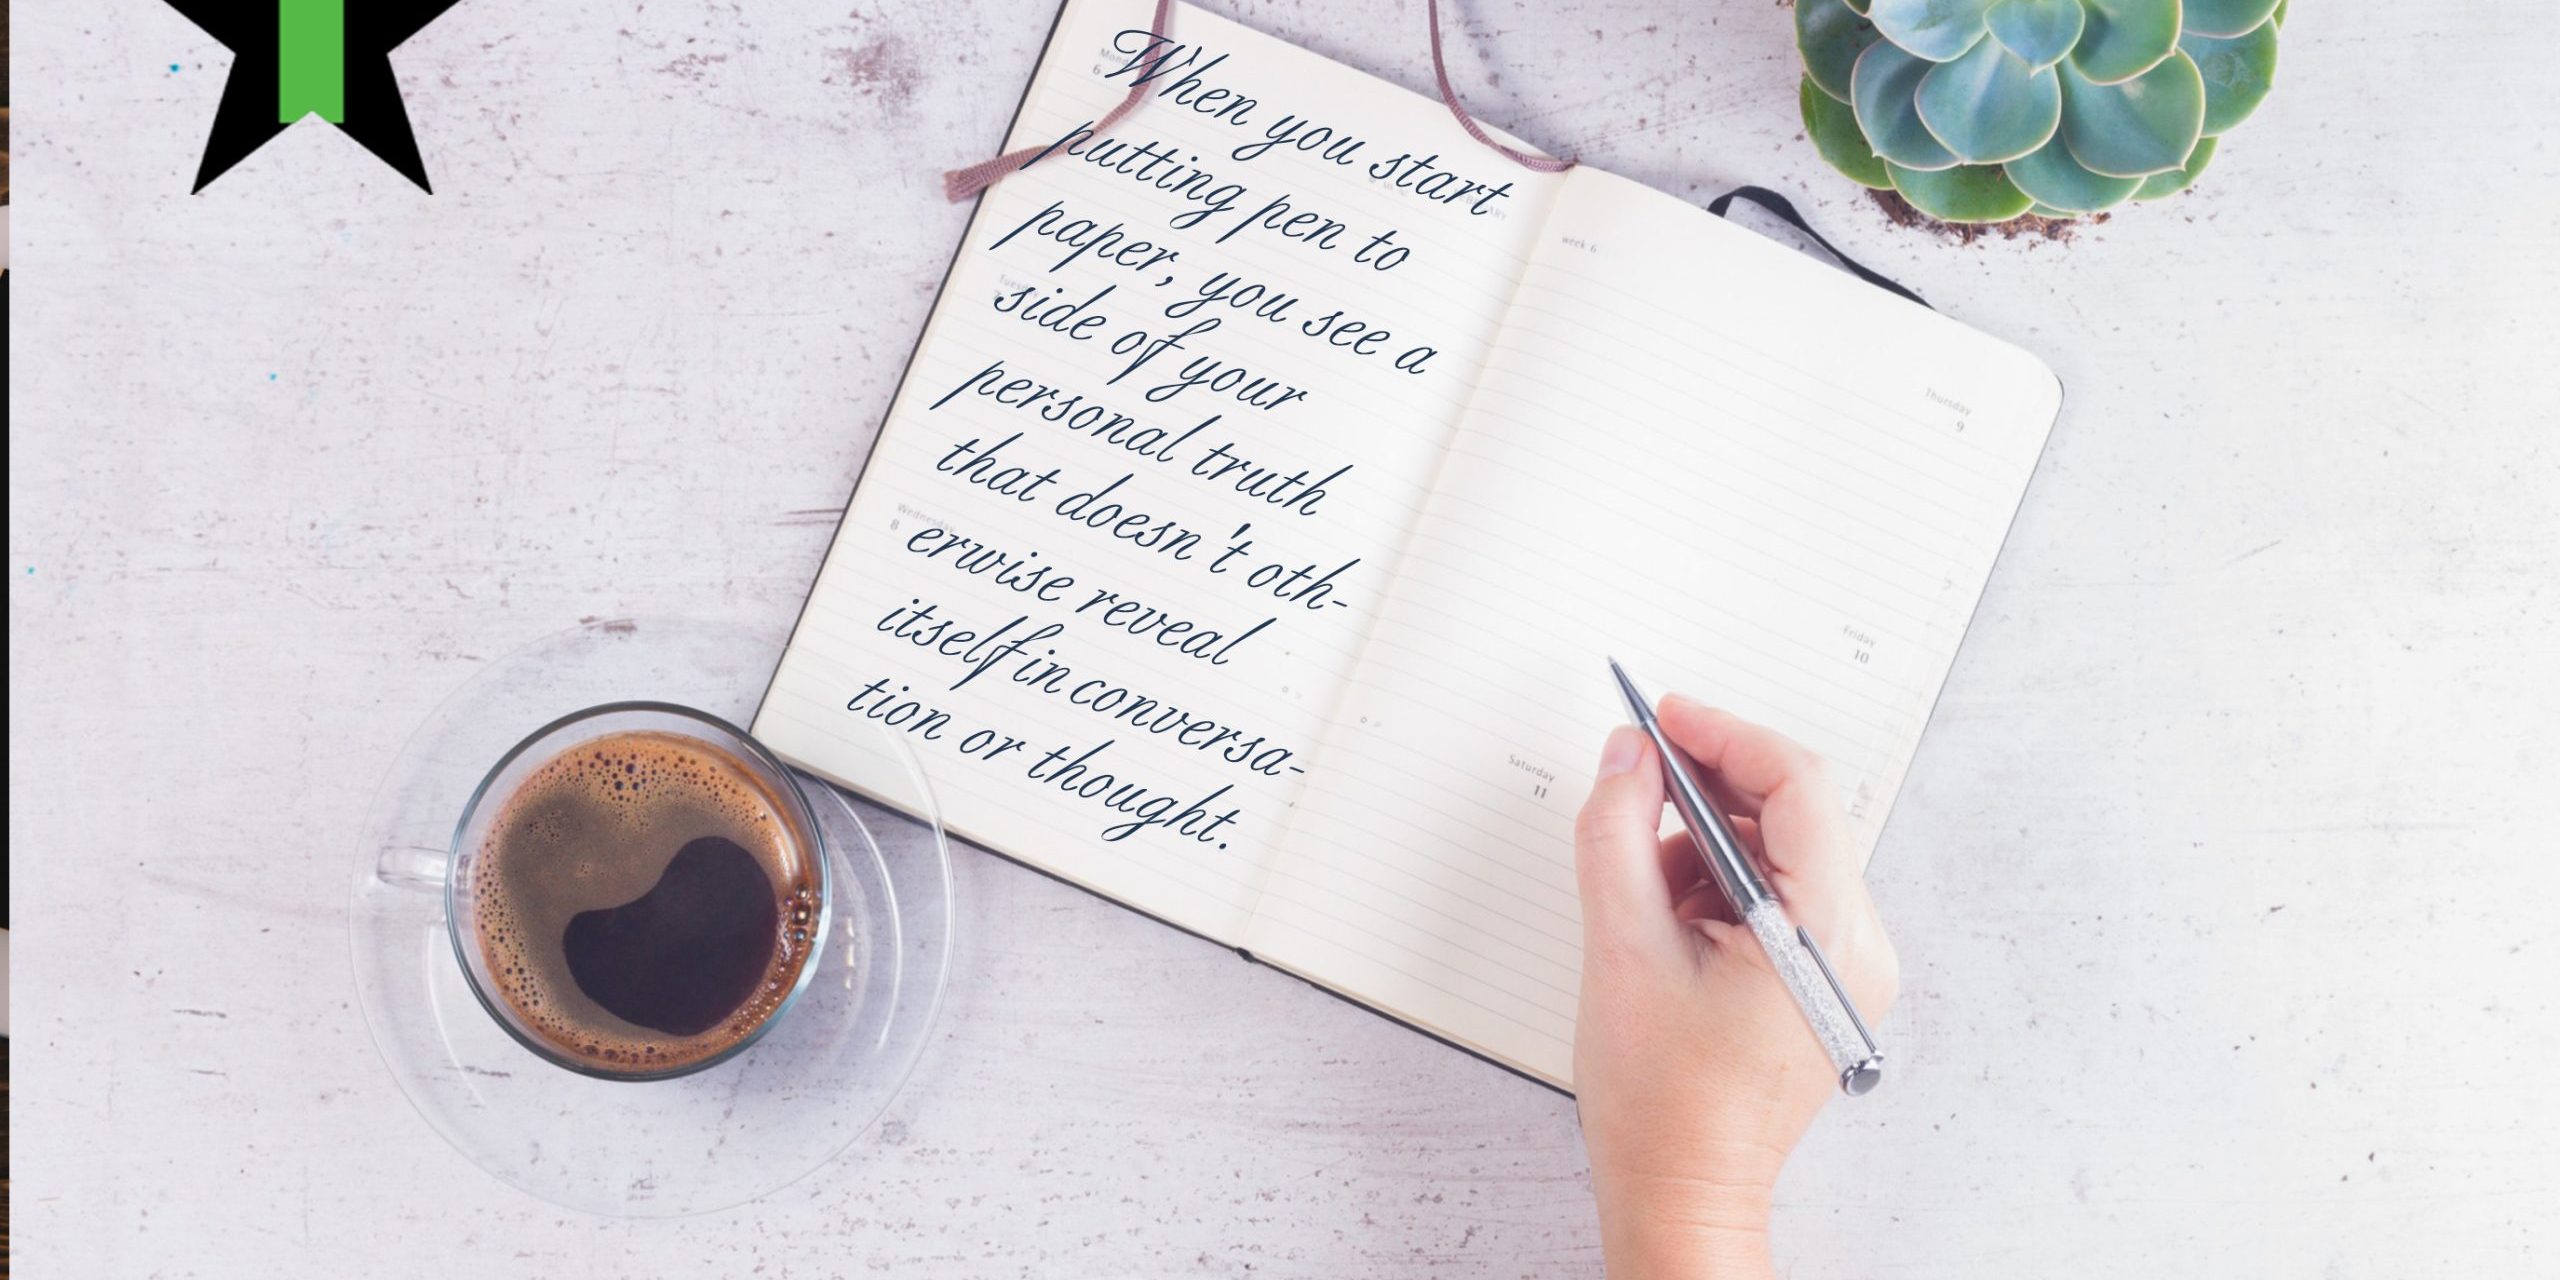 When you start
putting pen to
paper, you see a
side of your
personal truth
that doesn't oth-
erwise reveal
itself in conversa-
tion or thought.
Tuesday
Wednesday
8
6
week 6
Thursday
9
Friday
10
Saturday
11